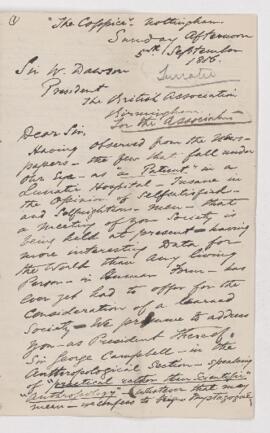 (1
"The Coppice". Nottingham.
Sunday Afternoon
5th September
1886.
Lunatic
Sir W. Dawson
President
The British Association
Birmingham.
For the Association
Dear Sir,
Having observed from the News-
papers - the few that fall under
our Eye - as "a Patient" in a
Lunatic Hospital - Insane in
the Opinion of
and men - that
a meeting of your Society is
being held at present - having
more interesting Data for
the World than any living
Person - in Human Form - has
ever yet had to offer for the
consideration of a learned
Society - We presume to address
you - as President thereof.
Sir George Campbell - in the
Anthropological Section - speaking
of "practical rather than Scientific
Anthropology" - whatever that may
mean - we confess to being